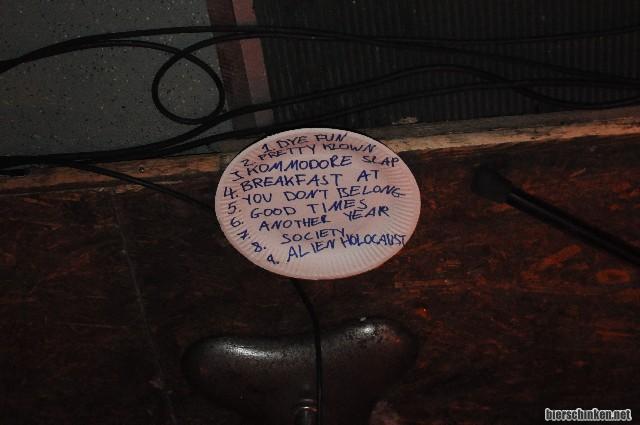 1. DYE FUN
2. PRETTY KLOWN
3. KOMMODORE SLAP
4. BREAKFAST AT
5. YOU DON'T BELONG
6. GOOD TIMES
7. ANOTHER YEAR
8. SOCIETY
9. ALIEN HOLOCAUST
bierschinken.net